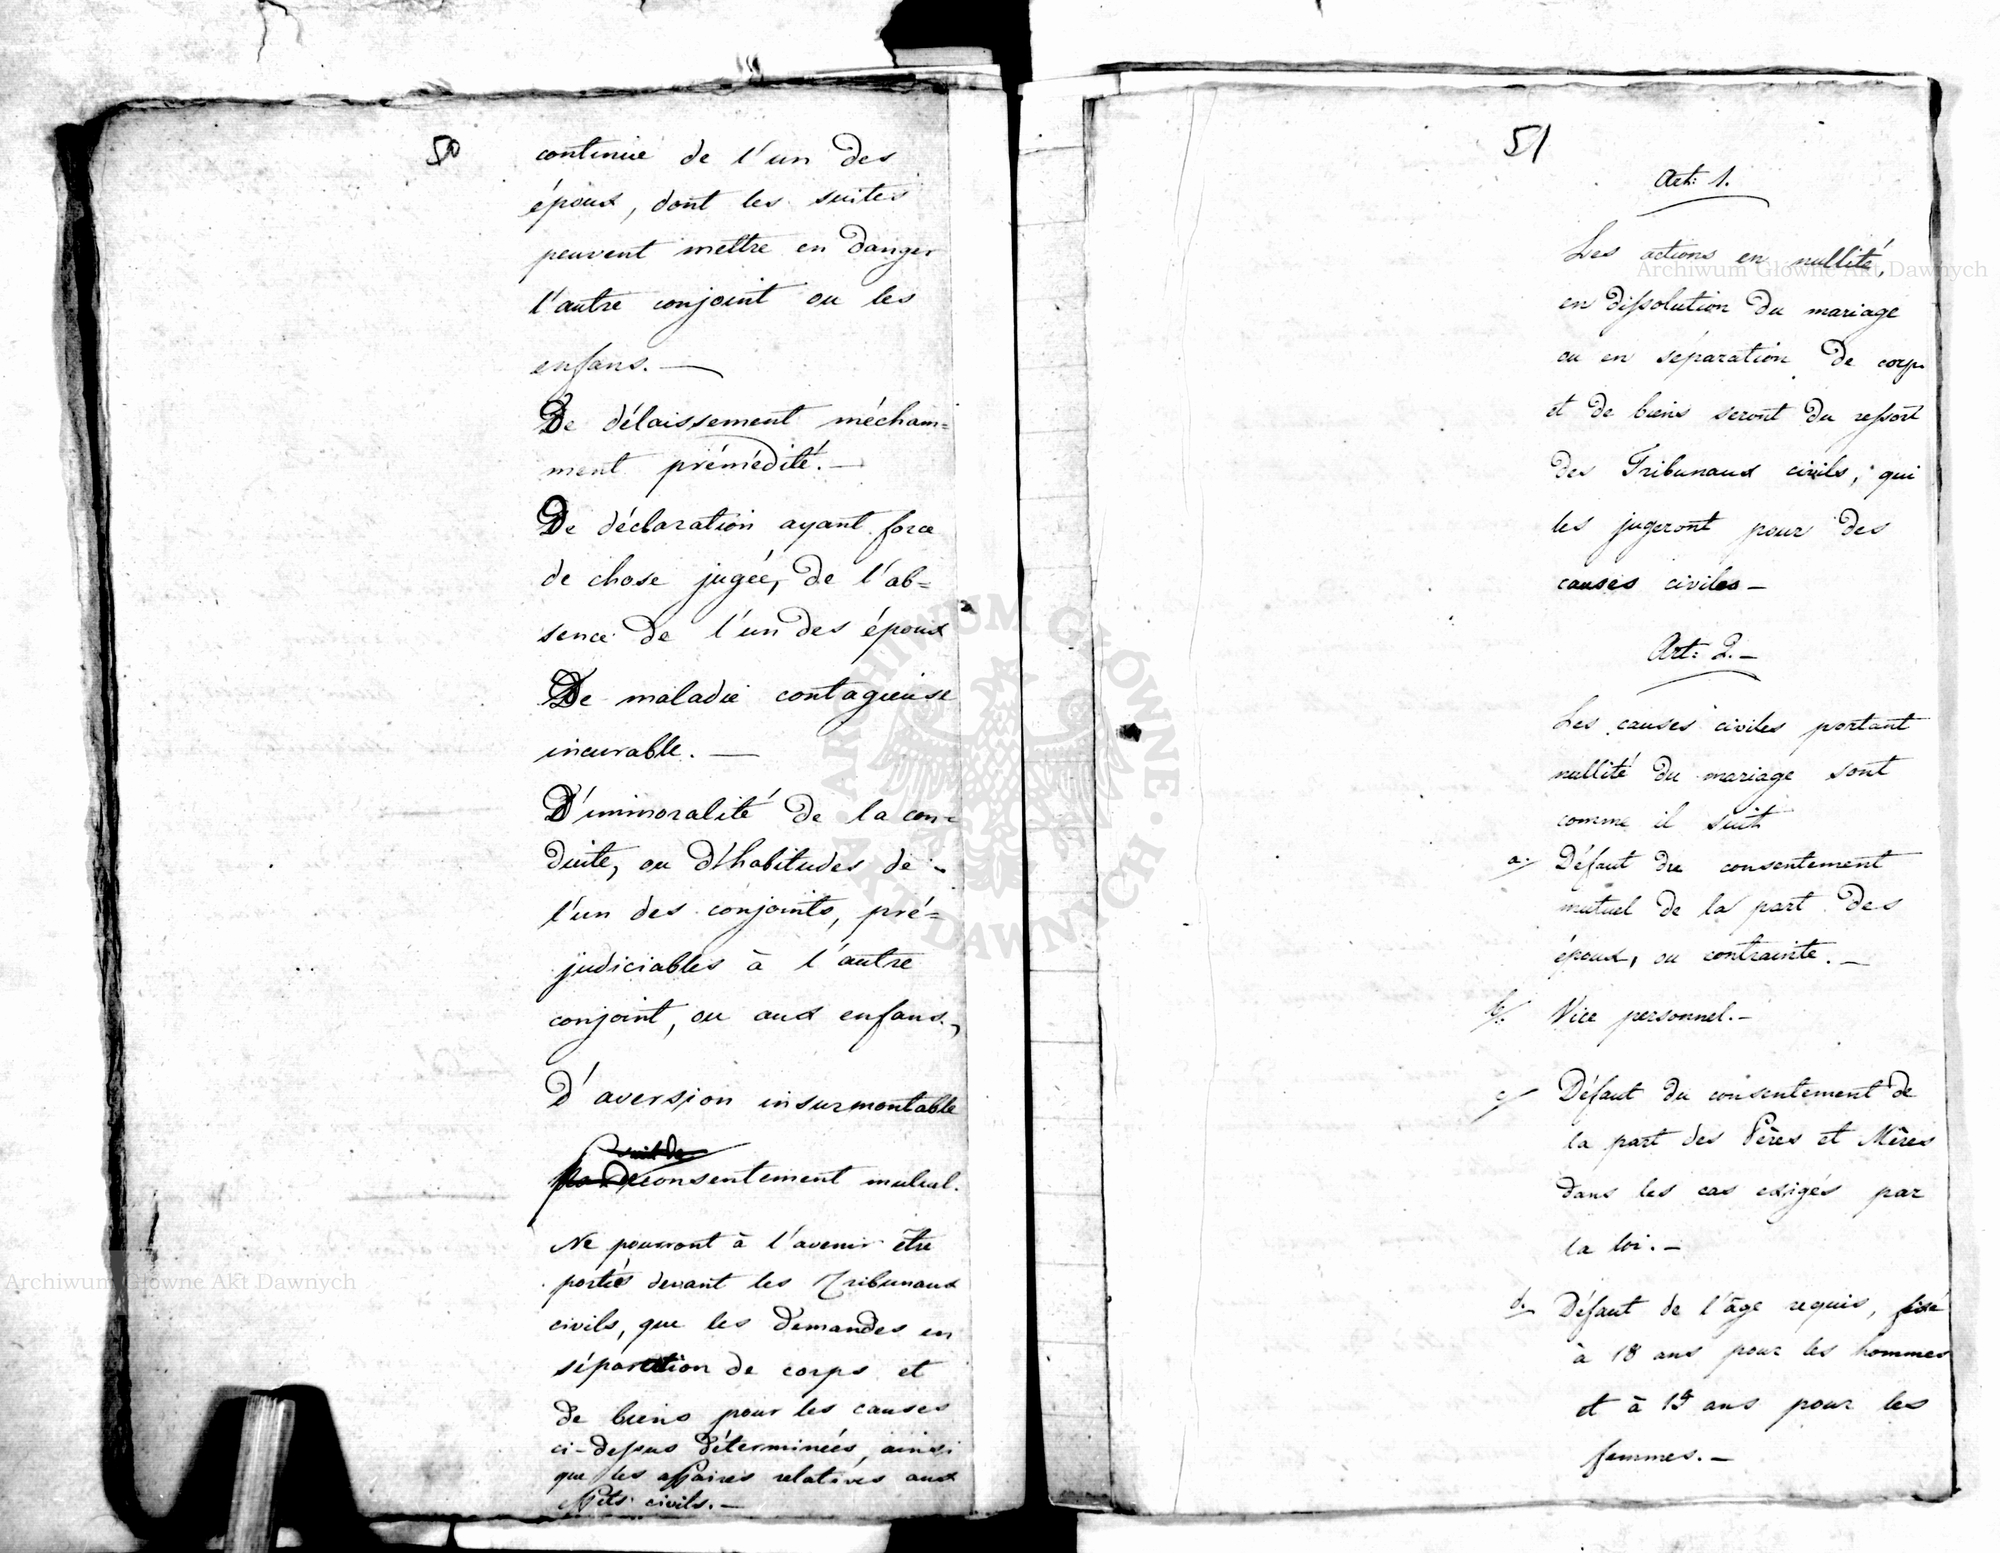 50
continuie de l'un des
époux, dont les suites
peuvent mettre en danger
l'autre conjoint ou les
enfans. —
De délaissement mécham=
ment prémédité. —
De déclaration ayant force
de chose jugée, de l'ab=
sence de l'un des époux
De maladie contagieuse
incurable. —
D'immoralité de la con=
duite, ou d'habitudes de -
l'un des conjoints, pré=
judiciables à l'autre
conjoint, ou aux enfans,
d'aversion insurmontable
consentement mutuel.
Ne pourront à l'avenir etre
portés devant les Tribunaux
civils, que les demandes en
séparation de corps et
de biens pour les causes
ci-dessus déterminées, ainsi
que les affaires relatives aux
effets civils. —
51
Art: 1.
Les actions en nullité,
en dissolution du mariage
ou en séparation de corps
et de biens seront du ressort
des Tribunaux civils, qui
les jugeront pour des
causes civiles —
Art: 2. —
Les causes civiles portant
nullité du mariage sont
comme il suit
a. Défaut du consentement
mutuel de la part des
époux, ou contrainte. —
b. Vice personnel. —
c. Défaut du consentement de
la part des Pères et Mères
dans les cas exigés par
la loi. —
d. Défaut de l'âge requis, fixé
à 18 ans pour les hommes
et à 15 ans pour les
femmes. —
Archiwum Główne Akt Dawnych
Archiwum Główne Akt Dawnych
ARCHIWUM GŁÓWNE AKT DAWNYCH